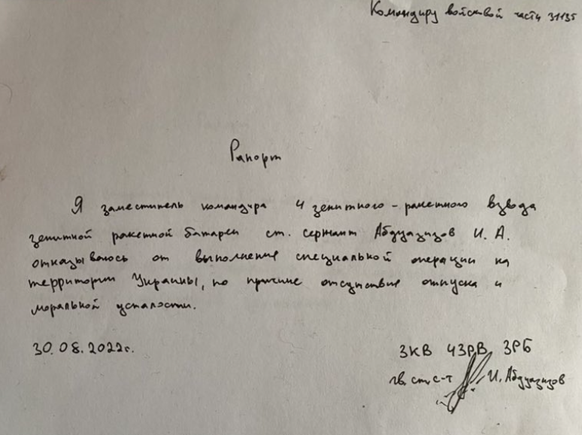 Командиру войсковой части 31135
Рапорт
Я заместитель командира 4 зенитного-ракетного взвода
зенитной ракетной батареи ст. сержант Абдуазизов И. А.
отказываюсь от выполнения специальной операции на
территории Украины, по причине отсутствия отпуска и
моральной усталости.
30.08.2022г.
ЗКВ 4ЗРВ ЗРБ
гв. ст. с-т И. Абдуазизов